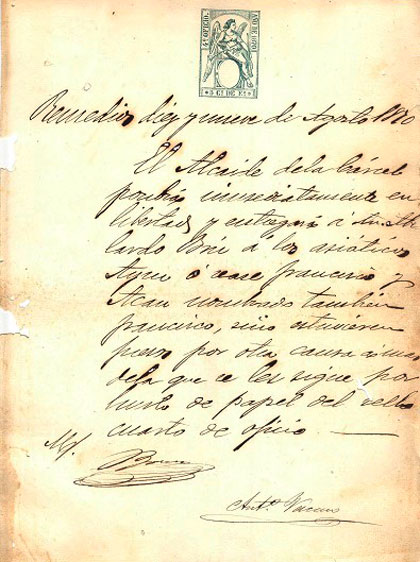 4º OFICIO. AÑO DE 1870
5 Cs DE Eº
Remedios diez y nueve de Agosto 1870
El Alcaide de la Cárcel
pondrá inmediatamente en
libertad y entregará á
lardo á los asiáticos
ó sease Francisco y
Acan nombrado tambien
Francisco, sino estuvieren
presos por otra causa
de la que se les sigue por
hurto de papel del sello
cuarto de oficio.